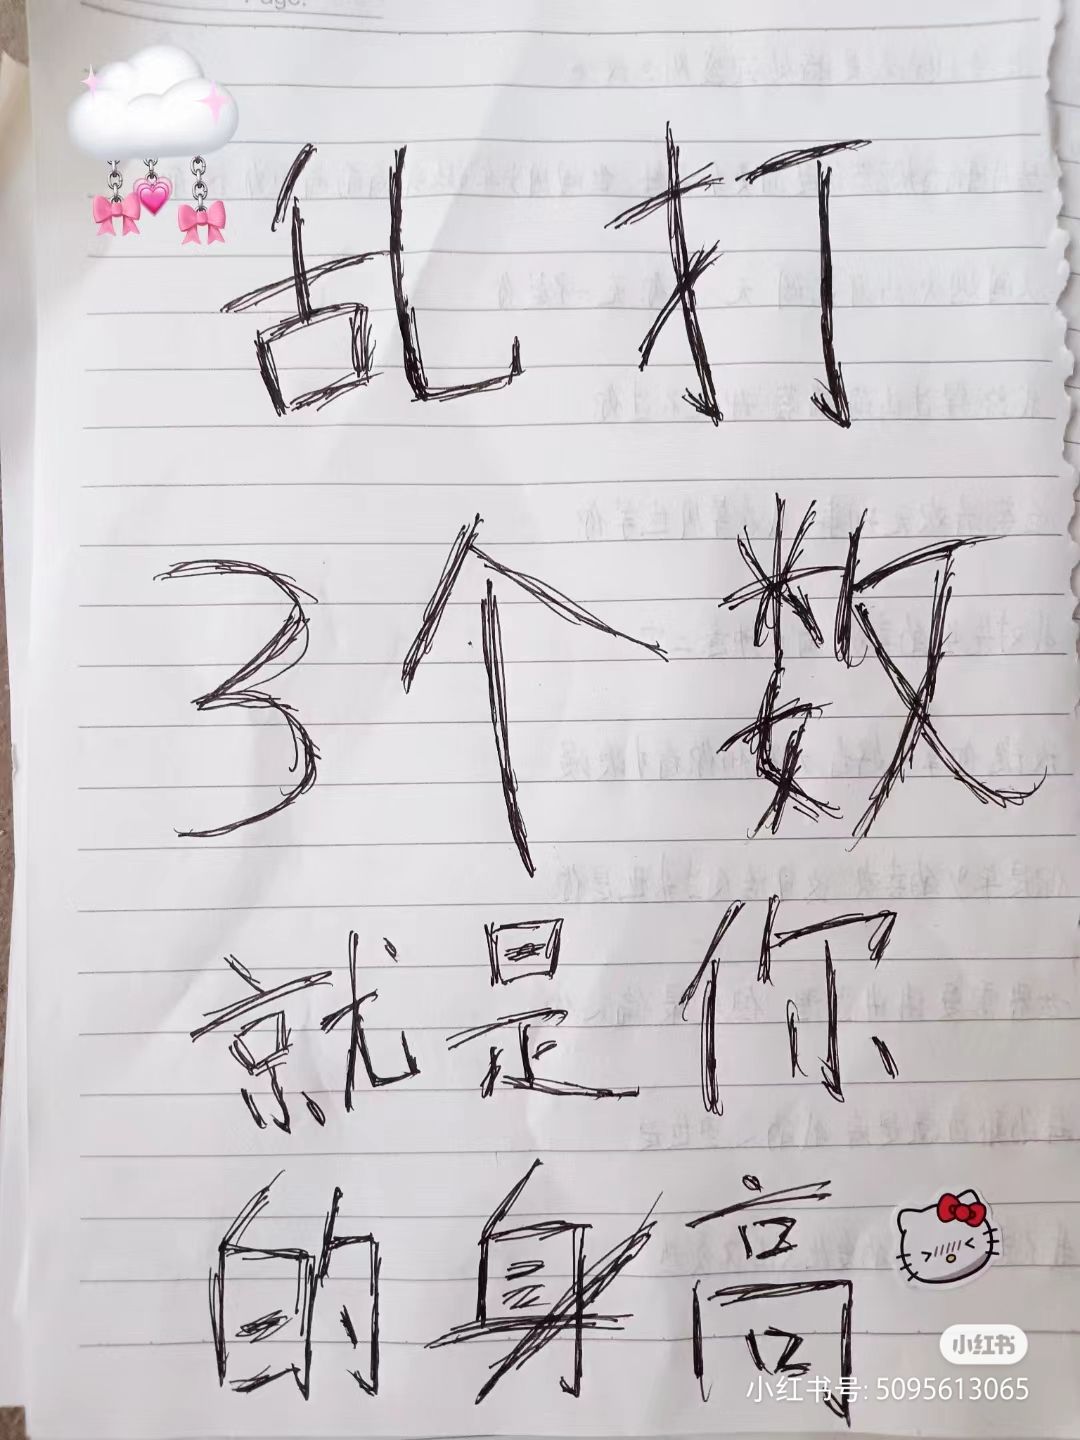 Page.
乱打
3个数
就是你
的身高
小红书
小红书号: 5095613065